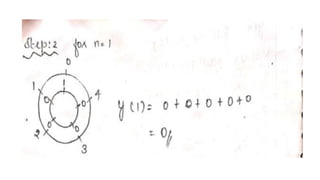 Step:2 for n=1
0
1
1
4
0
0
y(1)= 0+0+0+0+0
= 0//
2
0
0
3